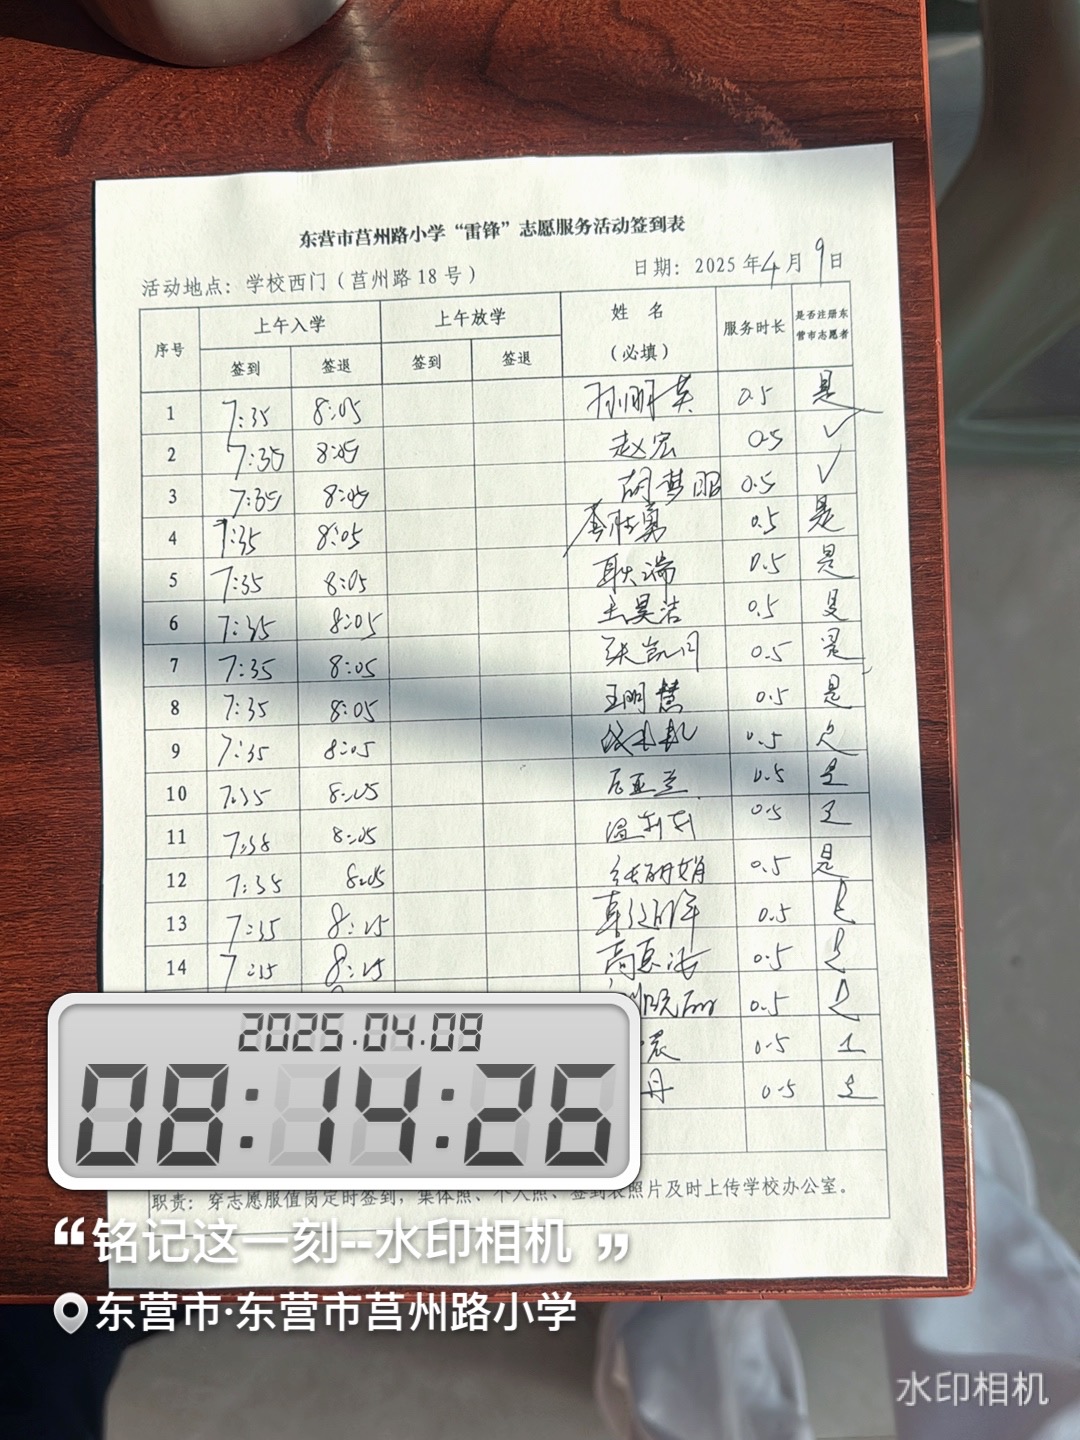 东营市莒州路小学“雷锋”志愿服务活动签到表
活动地点：学校西门（莒州路18号） 日期：2025年4月9日
序号 上午入学 上午放学 姓 名（必填） 服务时长 是否注册东营市志愿者
签到 签退 签到 签退
1 7:35 8:05 孙明英 0.5 是
2 7:35 8:05 赵宏 0.5 ✓
3 7:35 8:05 胡梦昭 0.5 ✓
4 7:35 8:05 0.5 是
5 7:35 8:05 耿端 0.5 是
6 7:35 8:05 王昊洁 0.5 是
7 7:35 8:05 张凯闩 0.5 是
8 7:35 8:05 王明慧 0.5 是
9 7:35 8:05 0.5 是
10 7:35 8:05 0.5 是
11 7:35 8:05 0.5 是
12 7:35 8:05 张丽娟 0.5 是
13 7:35 8:05 0.5 是
14 7:35 8:05 0.5 是
0.5 是
0.5 是
丹 0.5 是
职责：穿志愿服值岗定时签到，集体照、个人照、签到表照片及时上传学校办公室。
2025.04.09
08:14:26
“铭记这一刻--水印相机 ”
东营市·东营市莒州路小学
水印相机